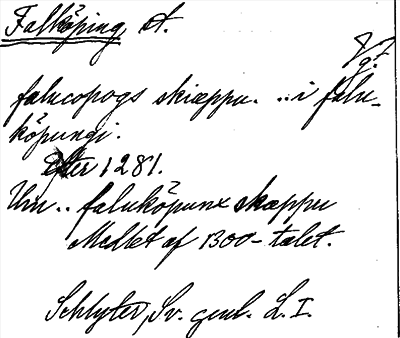 Falköping, st.
Vg.
falucopogs skiæppu. .. i falu-
köpungi.
Efter 1281.
Um .. faluköpunx skæppu
Midlet af 1300-talet.
Schlyter, Sv. gml. L. I.